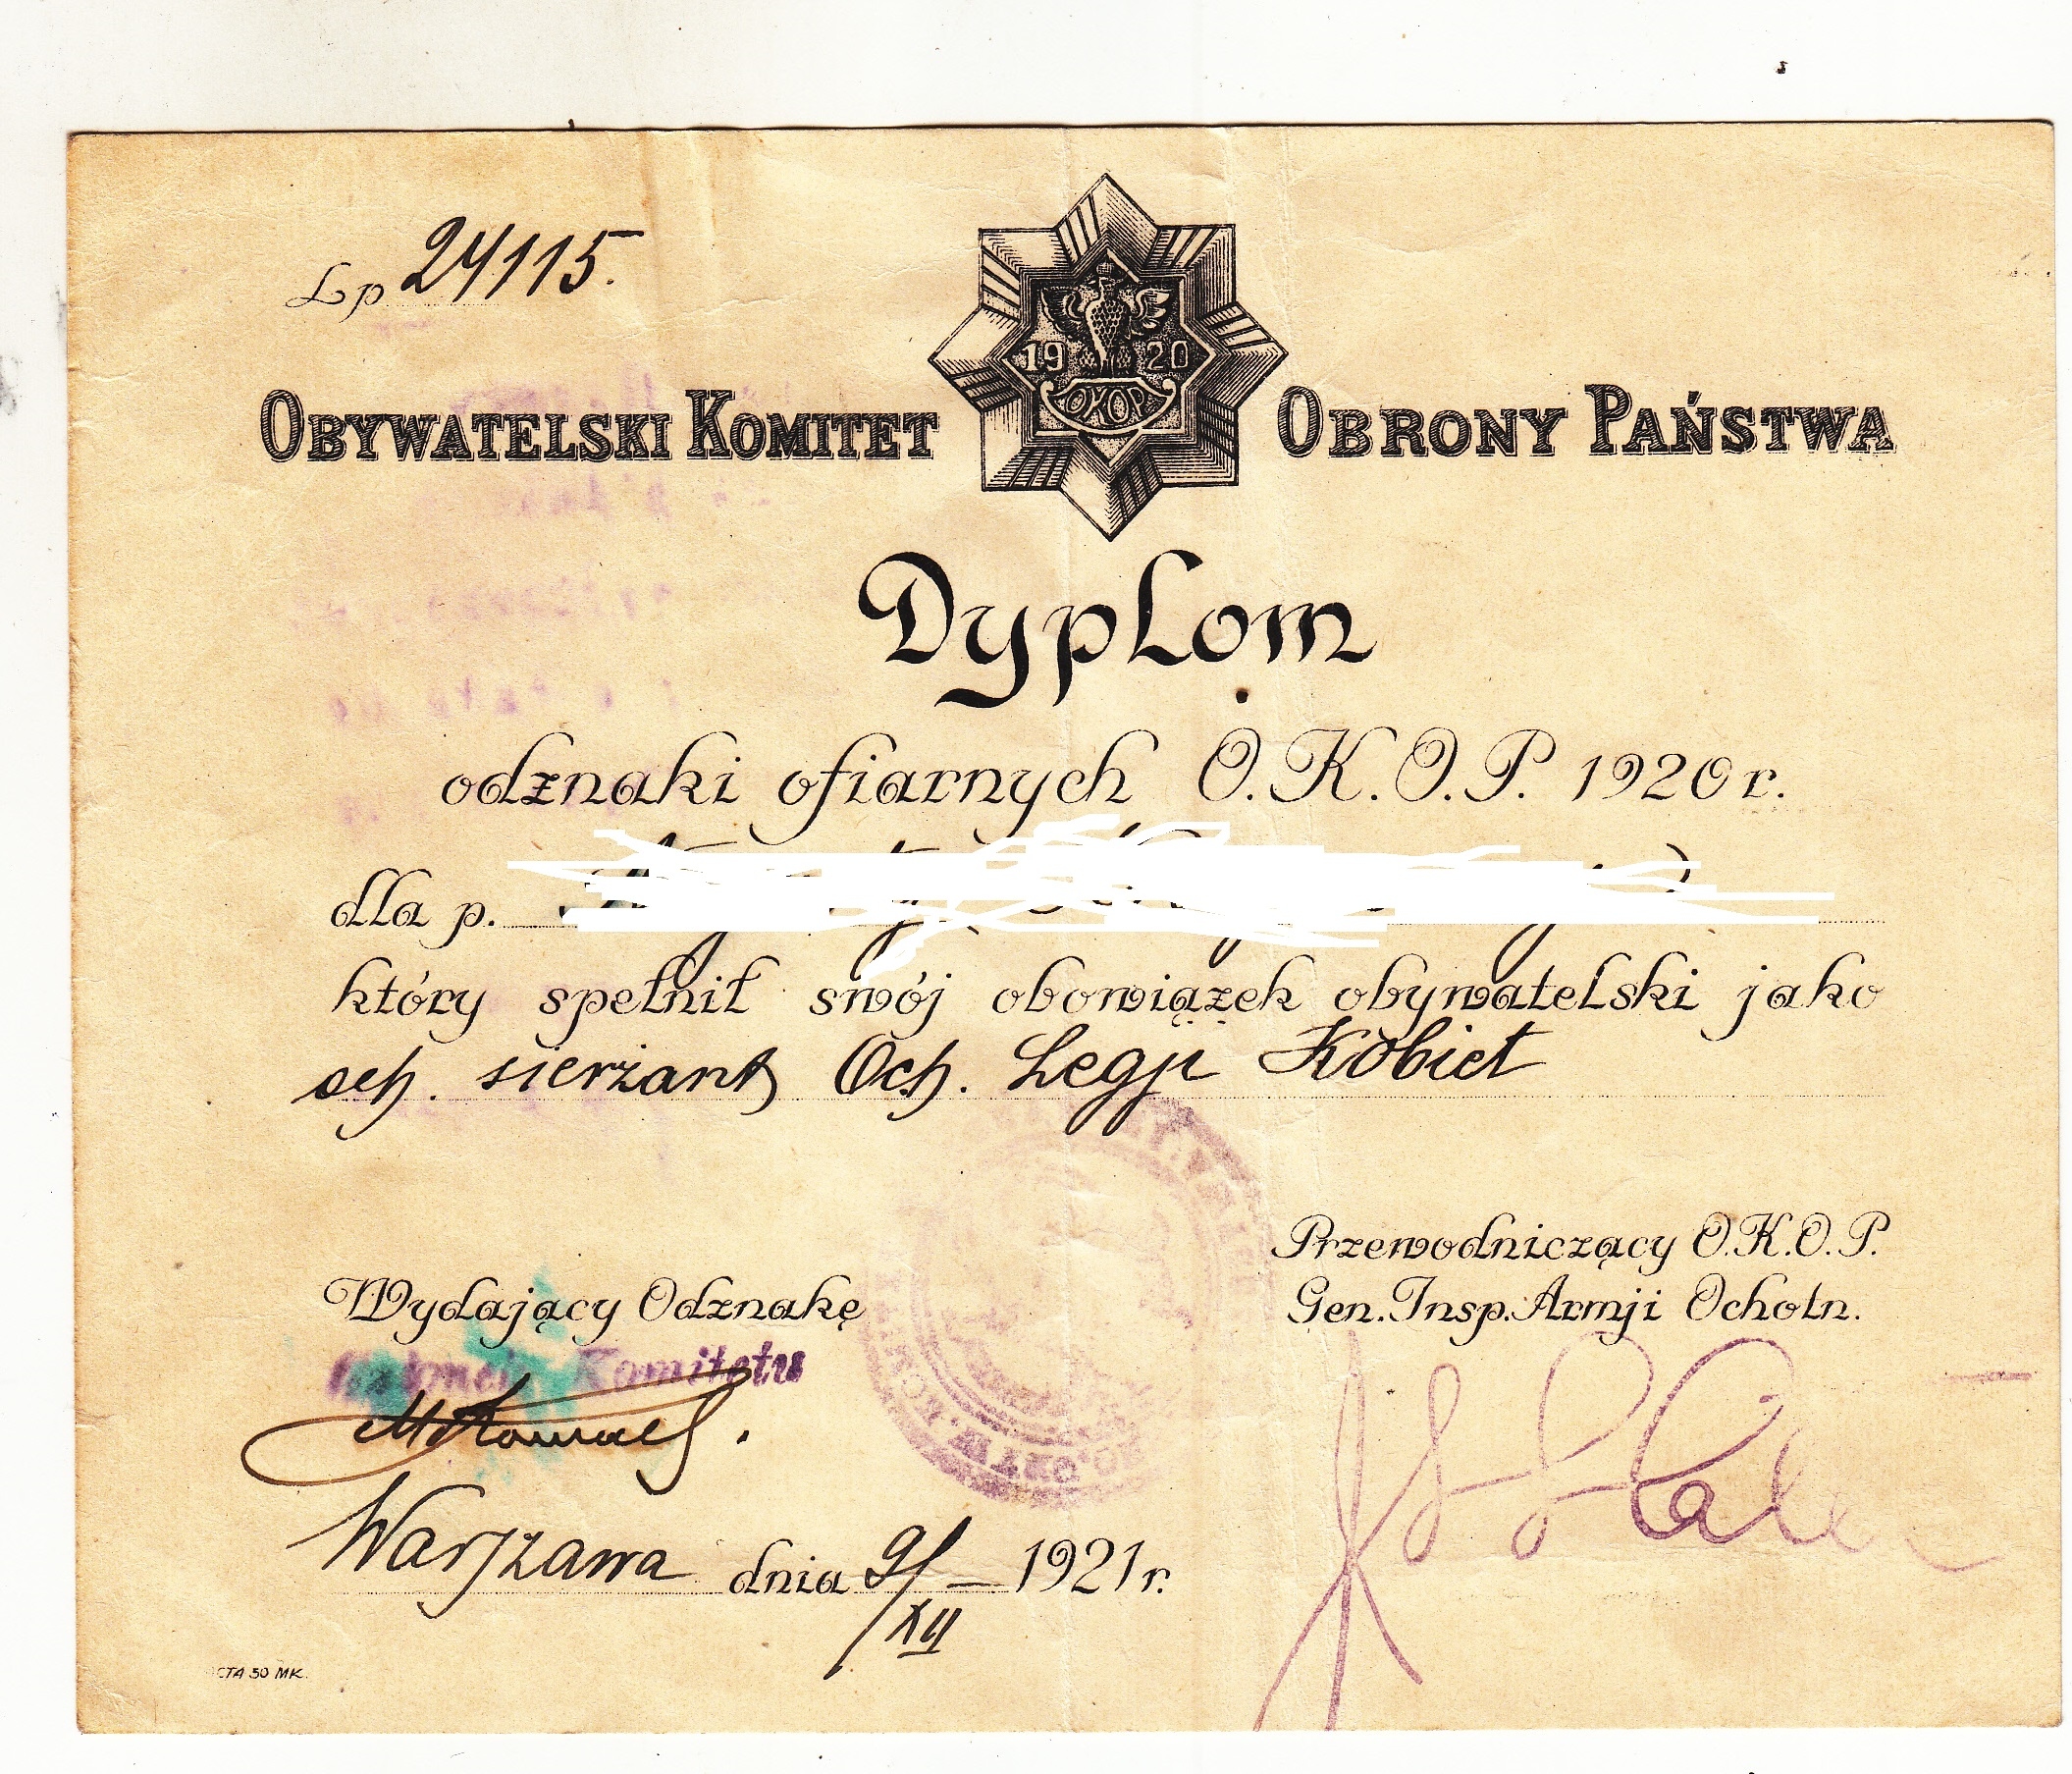 Lp 24115.
19 20
OKOP
OBYWATELSKI KOMITET OBRONY PAŃSTWA
Dyplom
odznaki ofiarnych O.K.O.P. 1920 r.
dla p.
który spełnił swój obowiązek obywatelski jako
och. sierżant Och. Legji Kobiet
Przewodniczący O.K.O.P.
Wydający Odznakę
Gen. Insp. Armji Ochotn.
Członek Komitetu
Warszawa dnia 9/XII – 1921 r.
50 MK.